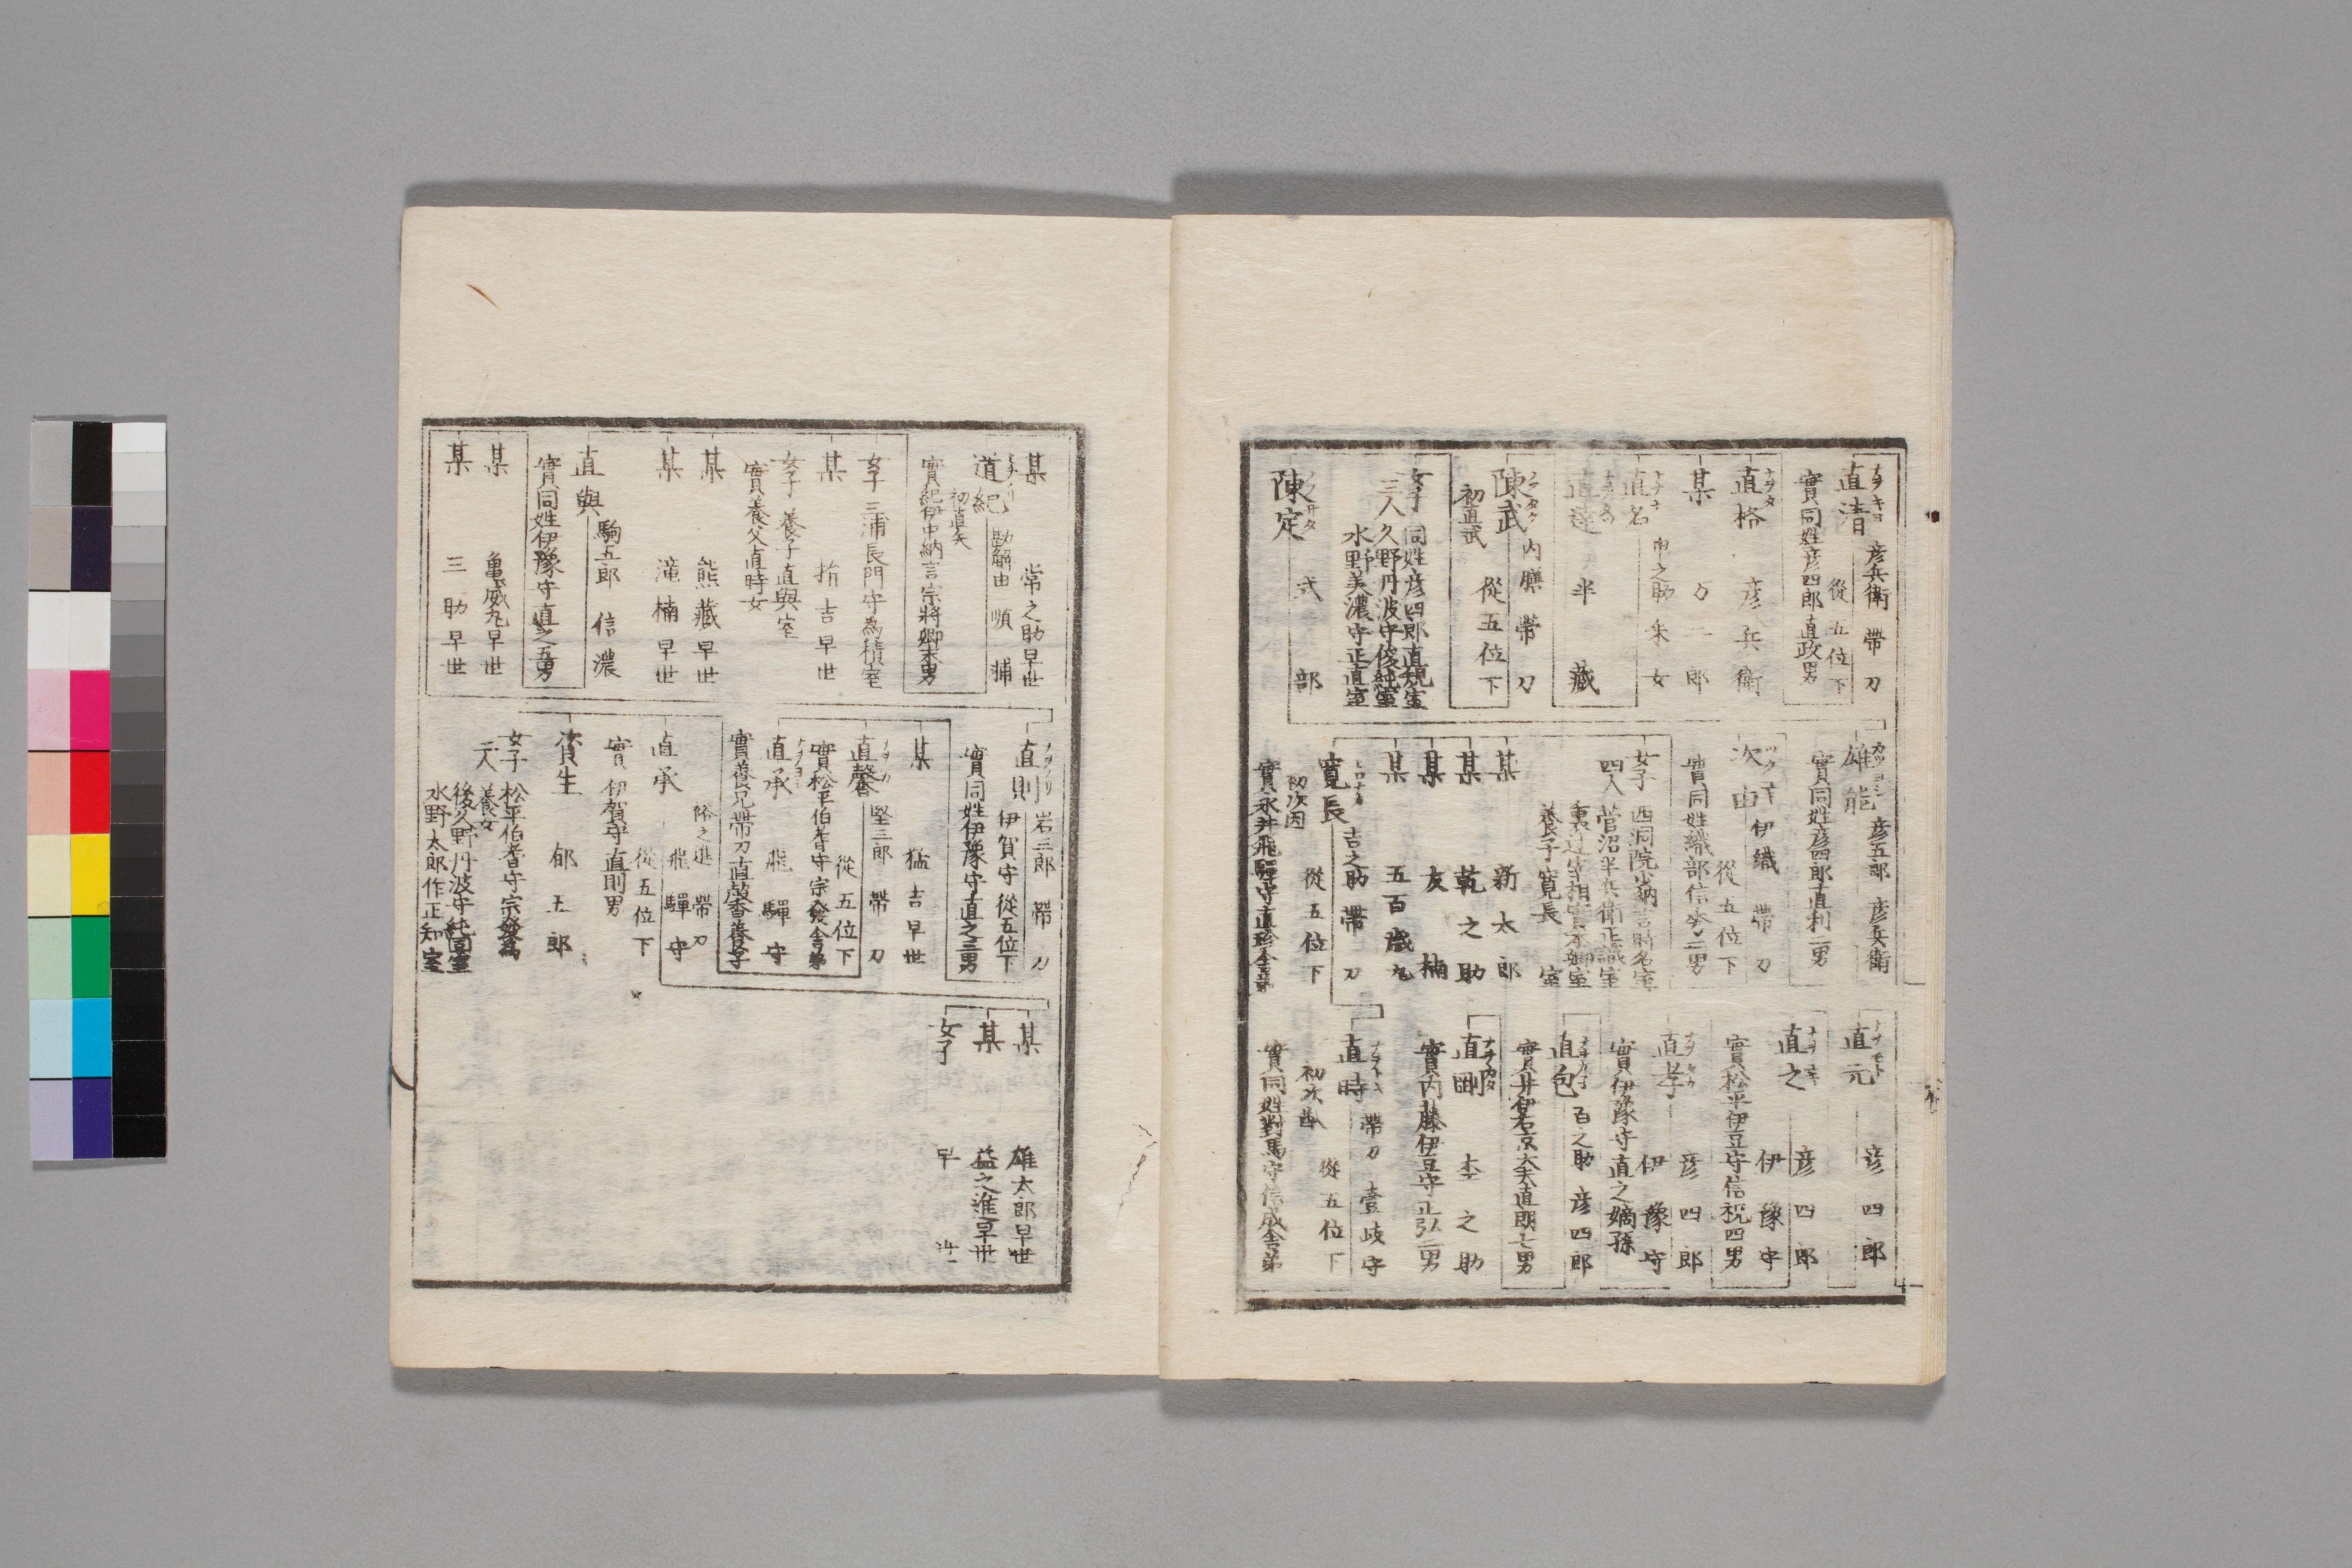 直清 彦兵衛 帶刀
從五位下
實同姓彦四郎直政男
直格 彦兵衛
某 万二郎
直名 采女
直達 半藏
陳武 内膳 帶刀
初直武 從五位下
女子 同姓彦四郎直規室
三人 久野丹波守俊純室
水野美濃守正直室
陳定 式部
雄能 彦五郎 彦兵衛
實同姓彦四郎直利二男
次由 伊織 帶刀
從五位下
實同姓織部信 二男
女子 西洞院少納言時名室
四人 菅沼半兵衛正識室
裏辻宰相實本卿室
養子寛長室
某 新太郎
某 乾之助
某 友楠
某 五百歳丸
寛長 吉之助 帶刀
初次因 從五位下
實永井飛驒守直珍舎弟
直元 彦四郎
直之 彦四郎
伊豫守
實松平伊豆守信祝四男
直孝 彦四郎
伊豫守
實伊豫守直之嫡孫
直包 百之助 彦四郎
實井伊右京大夫直朗七男
直剛 之助
實内藤伊豆守正弘二男
直時 帶刀 壹岐守
初次 從五位下
實同姓對馬守信成舎弟
某 常之助早世
道紀 勘解由 順輔
初直矢
實紀伊中納言宗將卿末男
女子 三浦長門守為積室
某 吉早世
女子 養子直與室
實養父直時女
某 熊藏早世
某 滝楠早世
直與 駒五郎 信濃
實同姓伊豫守直之五男
某 亀威丸早世
某 三助早世
直則 岩三郎 帶刀
伊賀守 從五位下
實同姓伊豫守直之三男
某 猛吉早世
直馨 堅三郎 帶刀
從五位下
實松平伯耆守宗發舎弟
直承 飛驒守
實養兄帶刀直馨養子
直承 帶刀
飛驒守
從五位下
實伊賀守直則男
資生 郁五郎
女子 松平伯耆守宗發為
養女
後久野丹波守純固室
水野太郎作正知室
某 雄太郎早世
某 益之進早世
女子 早世